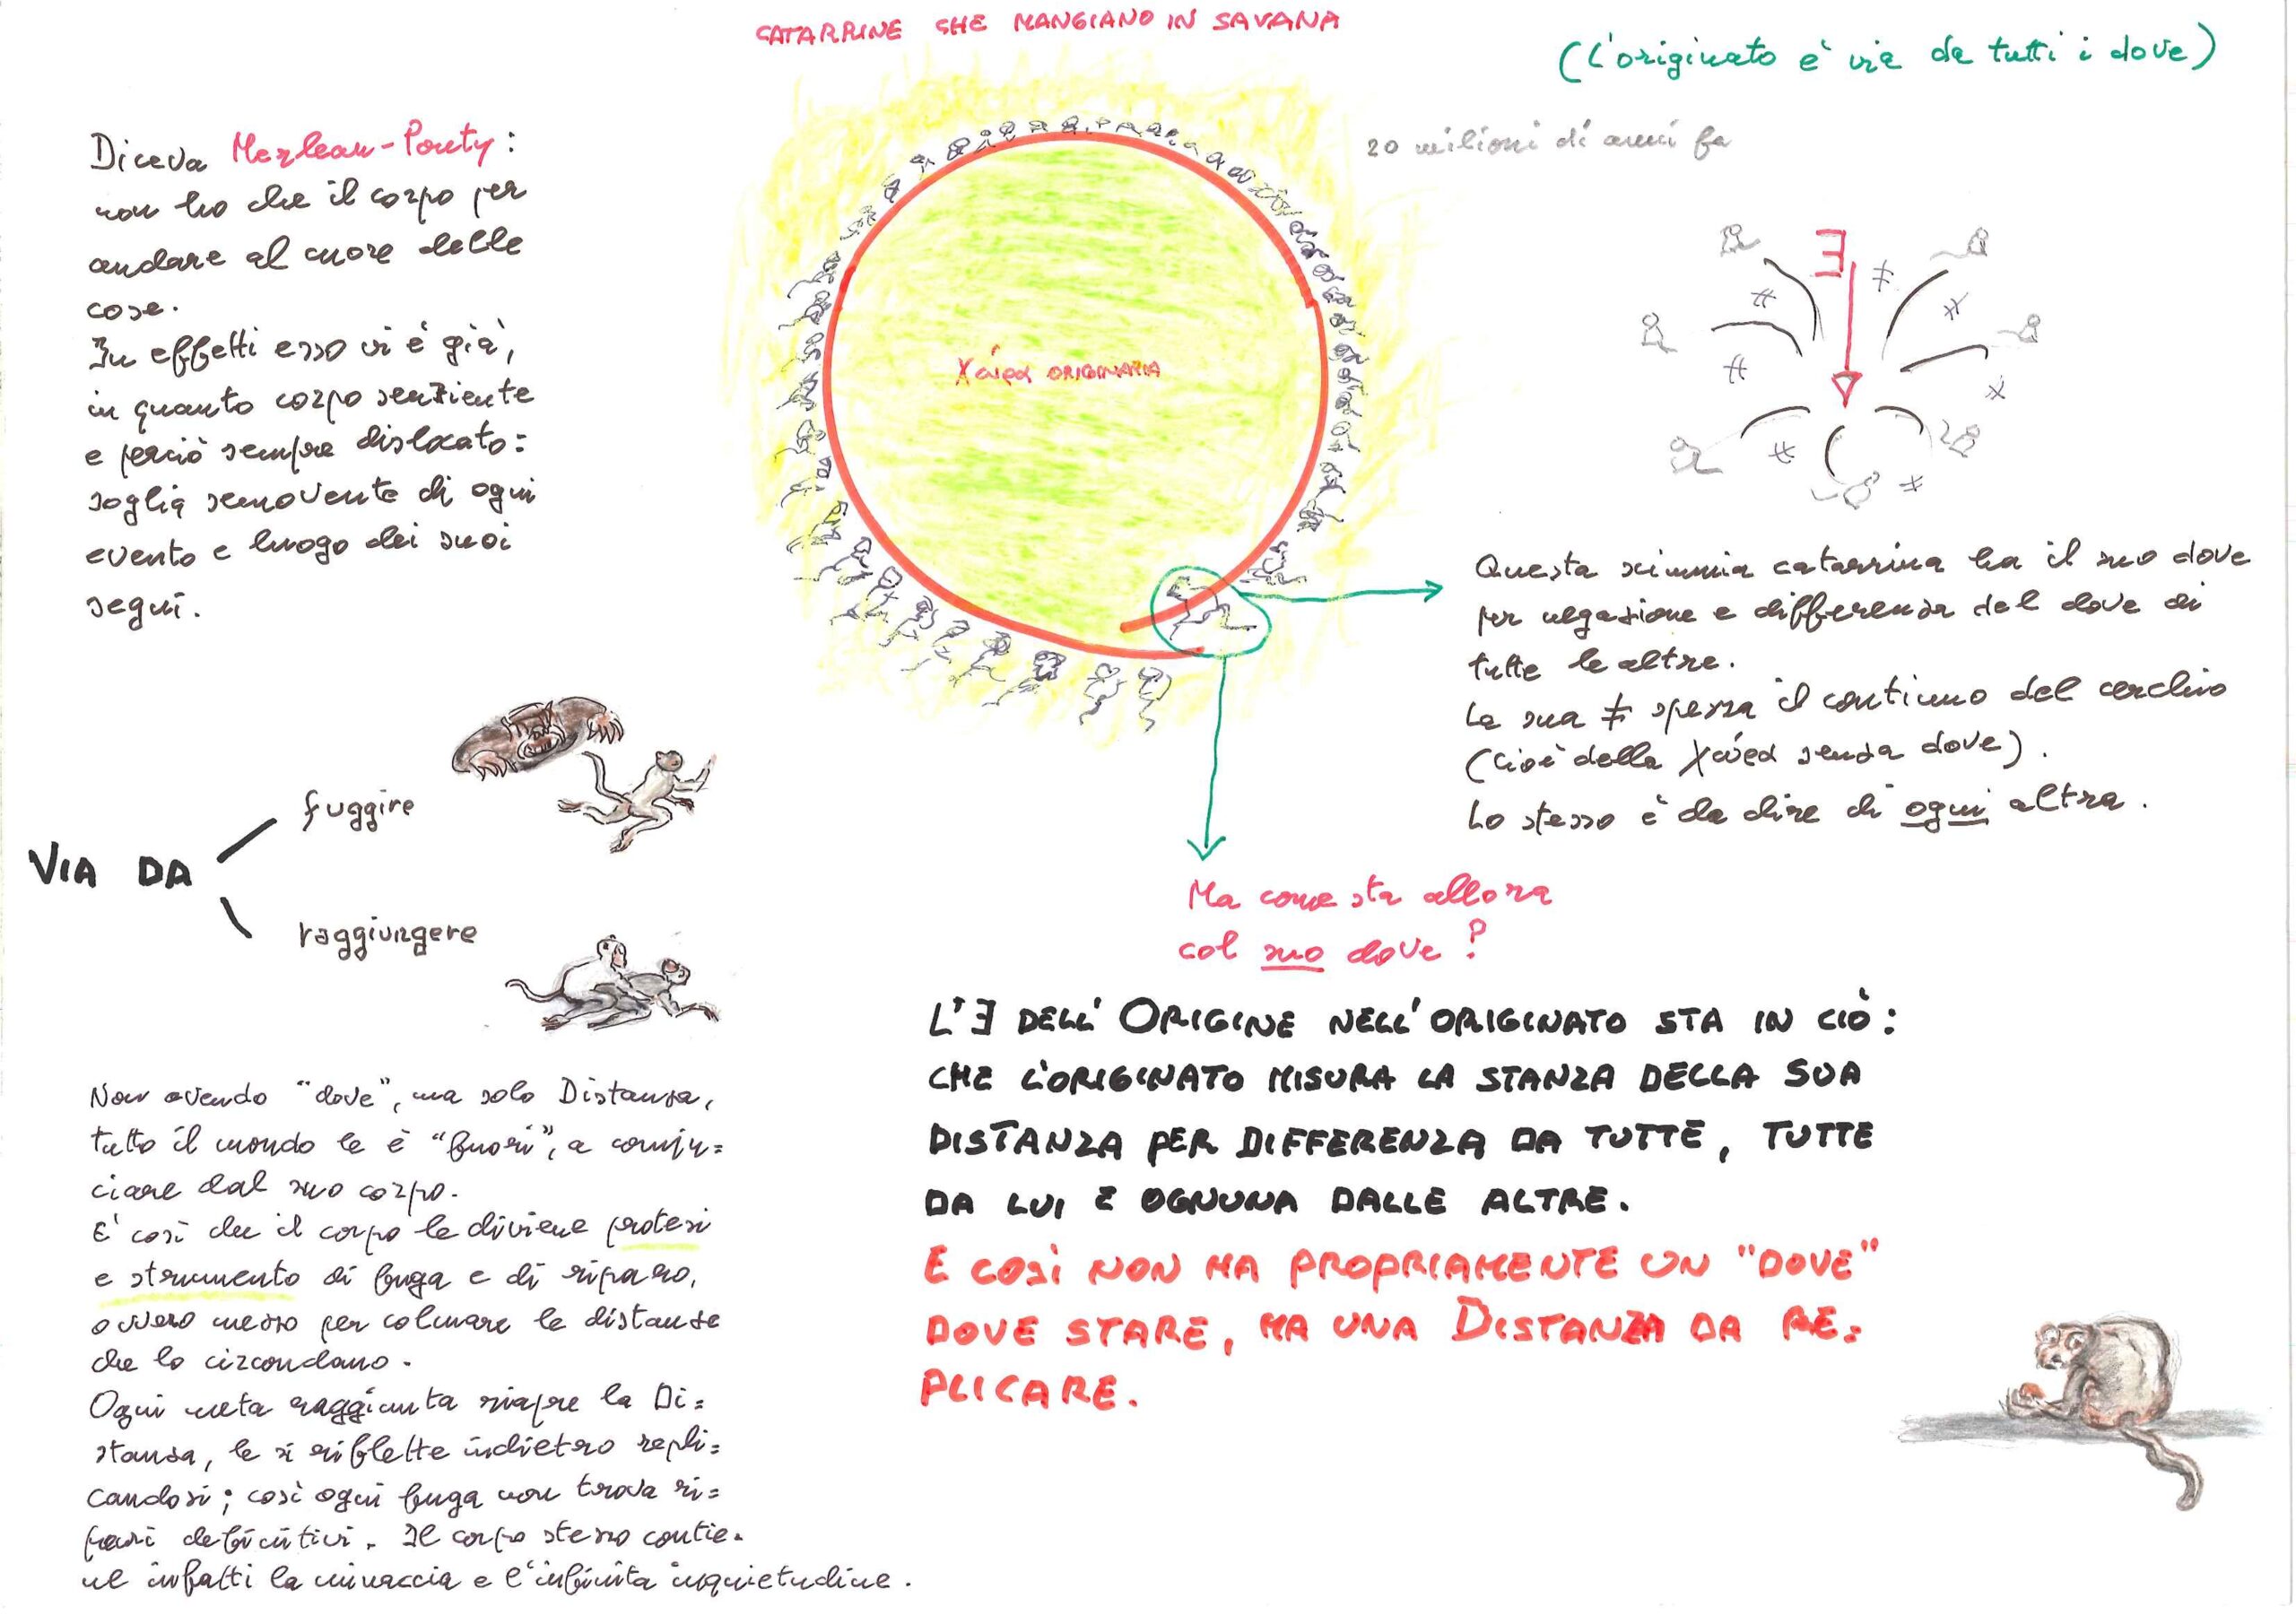 CATARRINE CHE MANGIANO IN SAVANA
(L'originato è via da tutti i dove)
20 milioni di anni fa
Diceva Merleau-Ponty:
non ho che il corpo per
andare al cuore delle
cose.
In effetti esso vi è già,
in quanto corpo senziente
e perciò sempre dislocato:
soglia semovente di ogni
evento e luogo dei suoi
segni.
Χώρα ORIGINARIA
∃
≠
≠
≠
≠
≠
≠
≠
Questa scimmia catarrina ha il suo dove
per negazione e differenza del dove di
tutte le altre.
La sua ≠ spezza il continuo del cerchio
(cioè della Χώρα senza dove).
Lo stesso è da dire di ogni altra.
VIA DA
fuggire
raggiungere
Ma come sta allora
col suo dove?
L'∃ DELL'ORIGINE NELL'ORIGINATO STA IN CIÒ:
CHE L'ORIGINATO MISURA LA STANZA DELLA SUA
DISTANZA PER DIFFERENZA DA TUTTE, TUTTE
DA LUI E OGNUNA DALLE ALTRE.
E COSÌ NON HA PROPRIAMENTE UN "DOVE"
DOVE STARE, MA UNA DISTANZA DA RE=
PLICARE.
Non avendo "dove", ma solo Distanza,
tutto il mondo le è "fuori", a comin=
ciare dal suo corpo.
E' così che il corpo le diviene protesi
e strumento di fuga e di riparo,
ovvero mezzo per colmare le distanze
che lo circondano.
Ogni meta raggiunta riapre la Di=
stanza, le si riflette indietro repli=
candosi; così ogni fuga non trova ri=
pari definitivi. Il corpo stesso contie=
ne infatti la minaccia e l'infinita inquietudine.